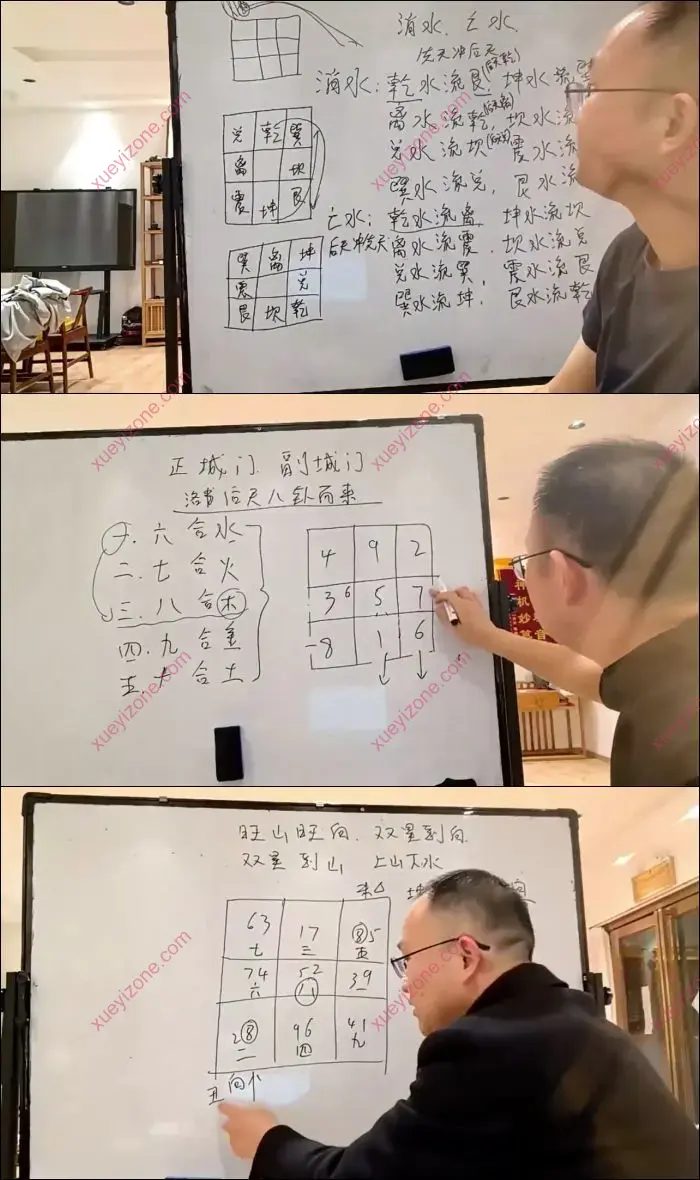 消水、亡水
先天冲后天
消水:乾水流艮(后天乾),坤水流
离水流乾,坎水流
兑水流坎,震水流
巽水流兑,艮水流
兑 乾 巽
离 坎
震 坤 艮
亡水:乾水流离 坤水流坎
后天冲先天 离水流震、坎水流兑
兑水流巽 震水流艮
巽水流坤, 艮水流乾
巽 离 坤
震 兑
艮 坎 乾
正城门 副城门
洛书后天八卦而来
一、六合水
二、七合火
三、八合木
四、九合金
五、十合土
4 9 2
3 6 5 7
8 1 6
神
机
妙
旺山旺向、双星到向
双星到山 上山下水
63 17 85
七 三 五
74 52 39
六 八 一
28 96 41
二 四 九
丑 向
xueyizone.com
xueyizone.com
xueyizone.com
xueyizone.com
xueyizone.com
xueyizone.com
xueyizone.com
xueyizone.com
xueyizone.com
xueyizone.com
xueyizone.com
xueyizone.com